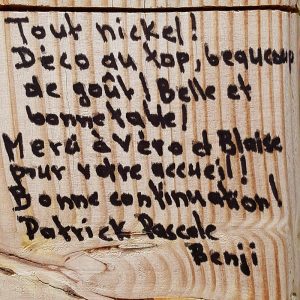 Tout nickel!
Déco au top, beaucoup
de goût! Belle et
bonne table!
Merci à Véro et Blaise
pour votre accueil!!
Bonne continuation!
Patrick Pascale
Benji